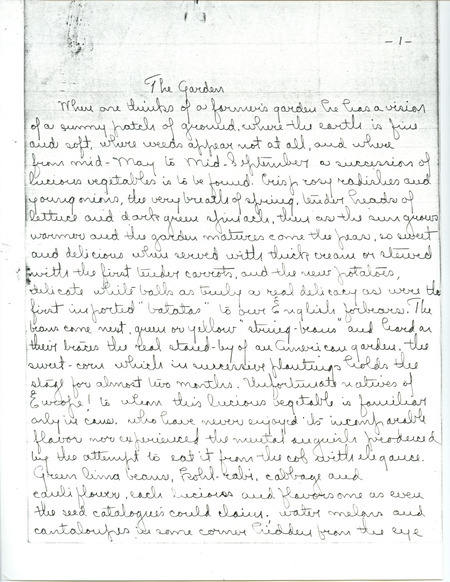 - 1 -
The Garden
When one thinks of a farmer's garden he has a vision
of a sunny patch of ground, where the earth is fine
and soft, where weeds appear not at all, and where
from mid-May to Mid-September a succession of
lucious vegetables is to be found. Crisp rosy radishes and
young onions, the very breath of spring, tender heads of
lettuce and dark green spinach, then as the sun grows
warmer and the garden matures come the peas, so sweet
and delicious when served with thick cream or stewed
with the first tender carrots, and the new potatoes,
delicate white balls as truly a real delicacy as were the
first imported "batatas" to our English forbears. The
beans come next, green or yellow "string-beans" and hard on
their traces the real stand-by of an American garden, the
sweet-corn which in successive plantings holds the
stage for almost two months. Unfortunate natives of
Europe! to whom this lucious vegetable is familiar
only in cans, who have never enjoyed its incomparable
flavor nor experienced the mental anguish produced
by the attempt to eat it from the cob with elegance.
Green lima beans, kohl-rabi, cabbage and
cauliflower, each lucious and flavorsome as even
the seed catalogues could claim; water melons and
cantaloupes in some corner hidden from the eye